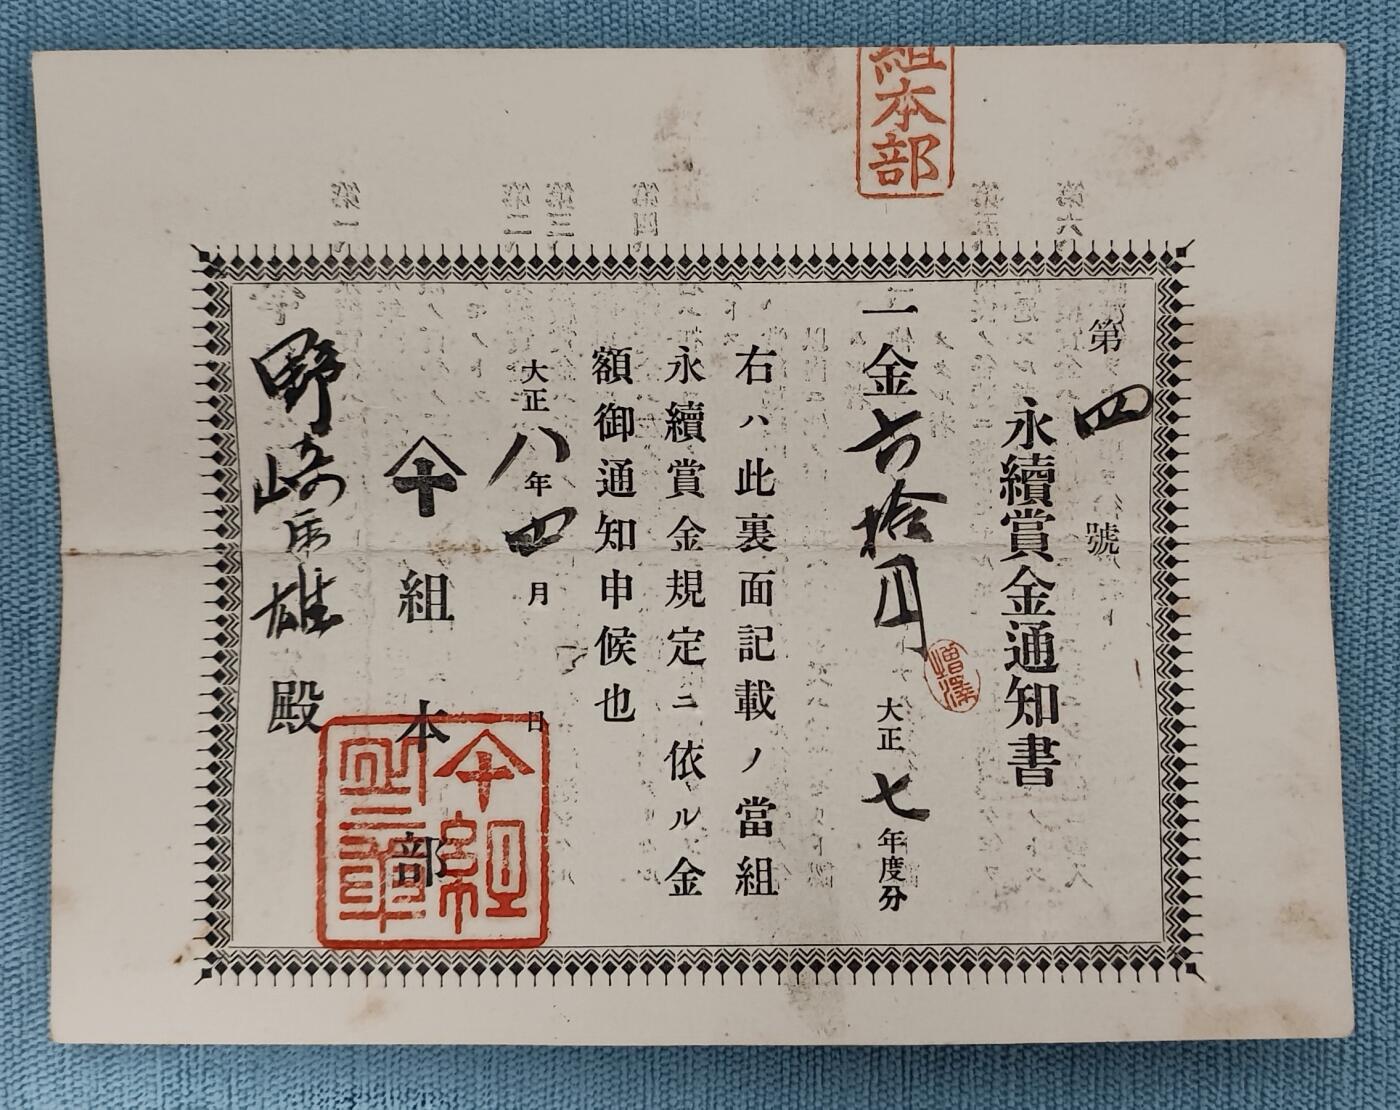 組本部
第四號
永續賞金通知書
一金六拾円
增澤
大正七年度分
右ハ此裏面記載ノ當組
永續賞金規定ニ依ル金
額御通知申候也
大正八年四月 日
组本部
野崎雄殿